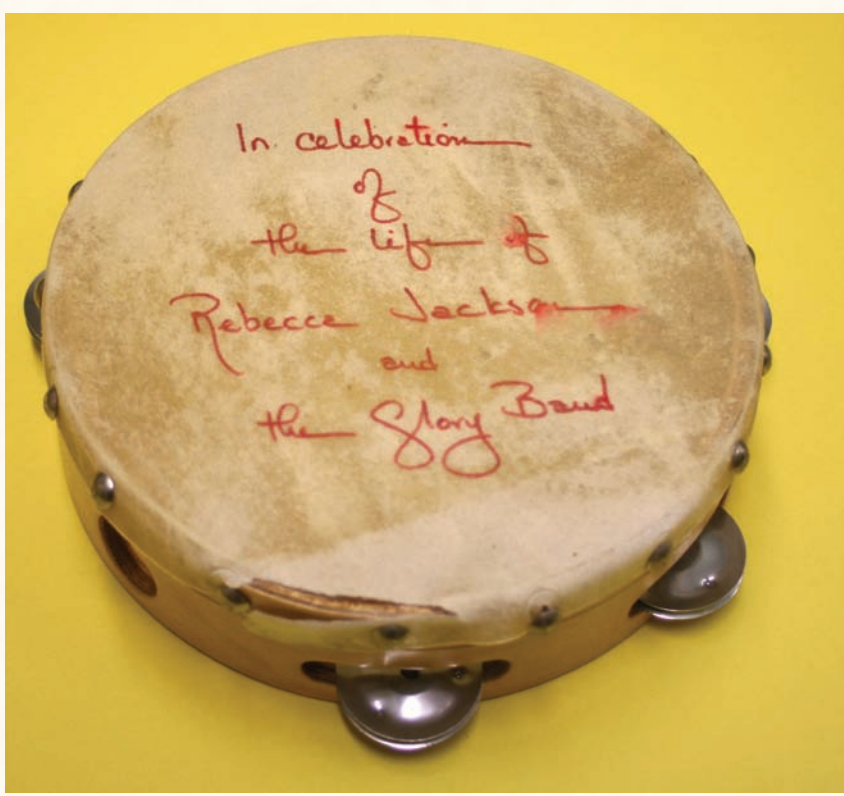 In celebration
of
the life of
Rebecca Jackson
and
the Glory Band